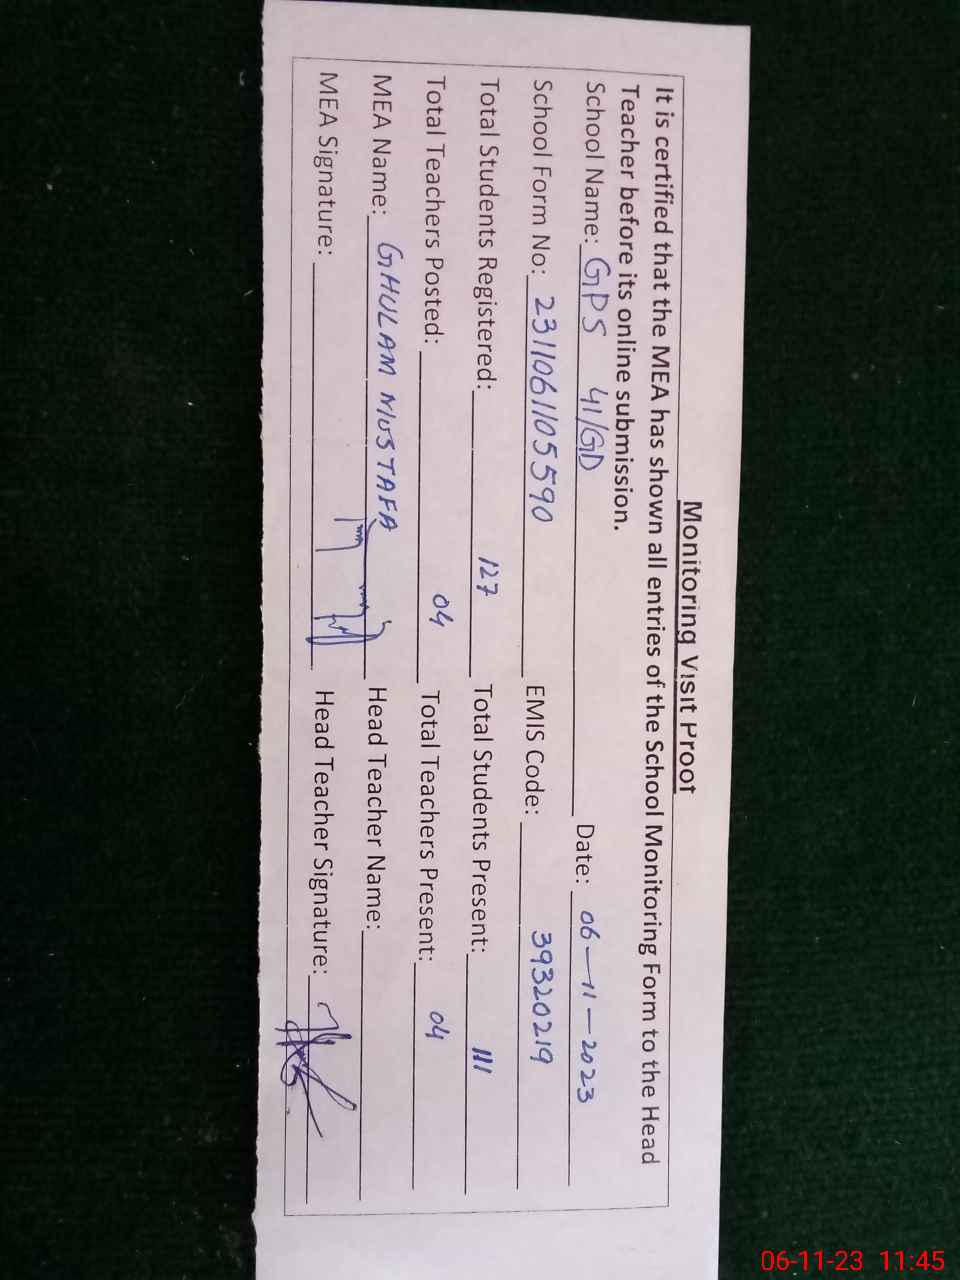 Monitoring Visit Proof
It is certified that the MEA has shown all entries of the School Monitoring Form to the Head
Teacher before its online submission.
School Name: GPS 41/GD Date: 06-11-2023
School Form No: 231106110559​0 EMIS Code: 39320219
Total Students Registered: 127 Total Students Present: 111
Total Teachers Posted: 04 Total Teachers Present: 04
MEA Name: GHULAM MUSTAFA Head Teacher Name:
MEA Signature: Head Teacher Signature:
06-11-23 11:45